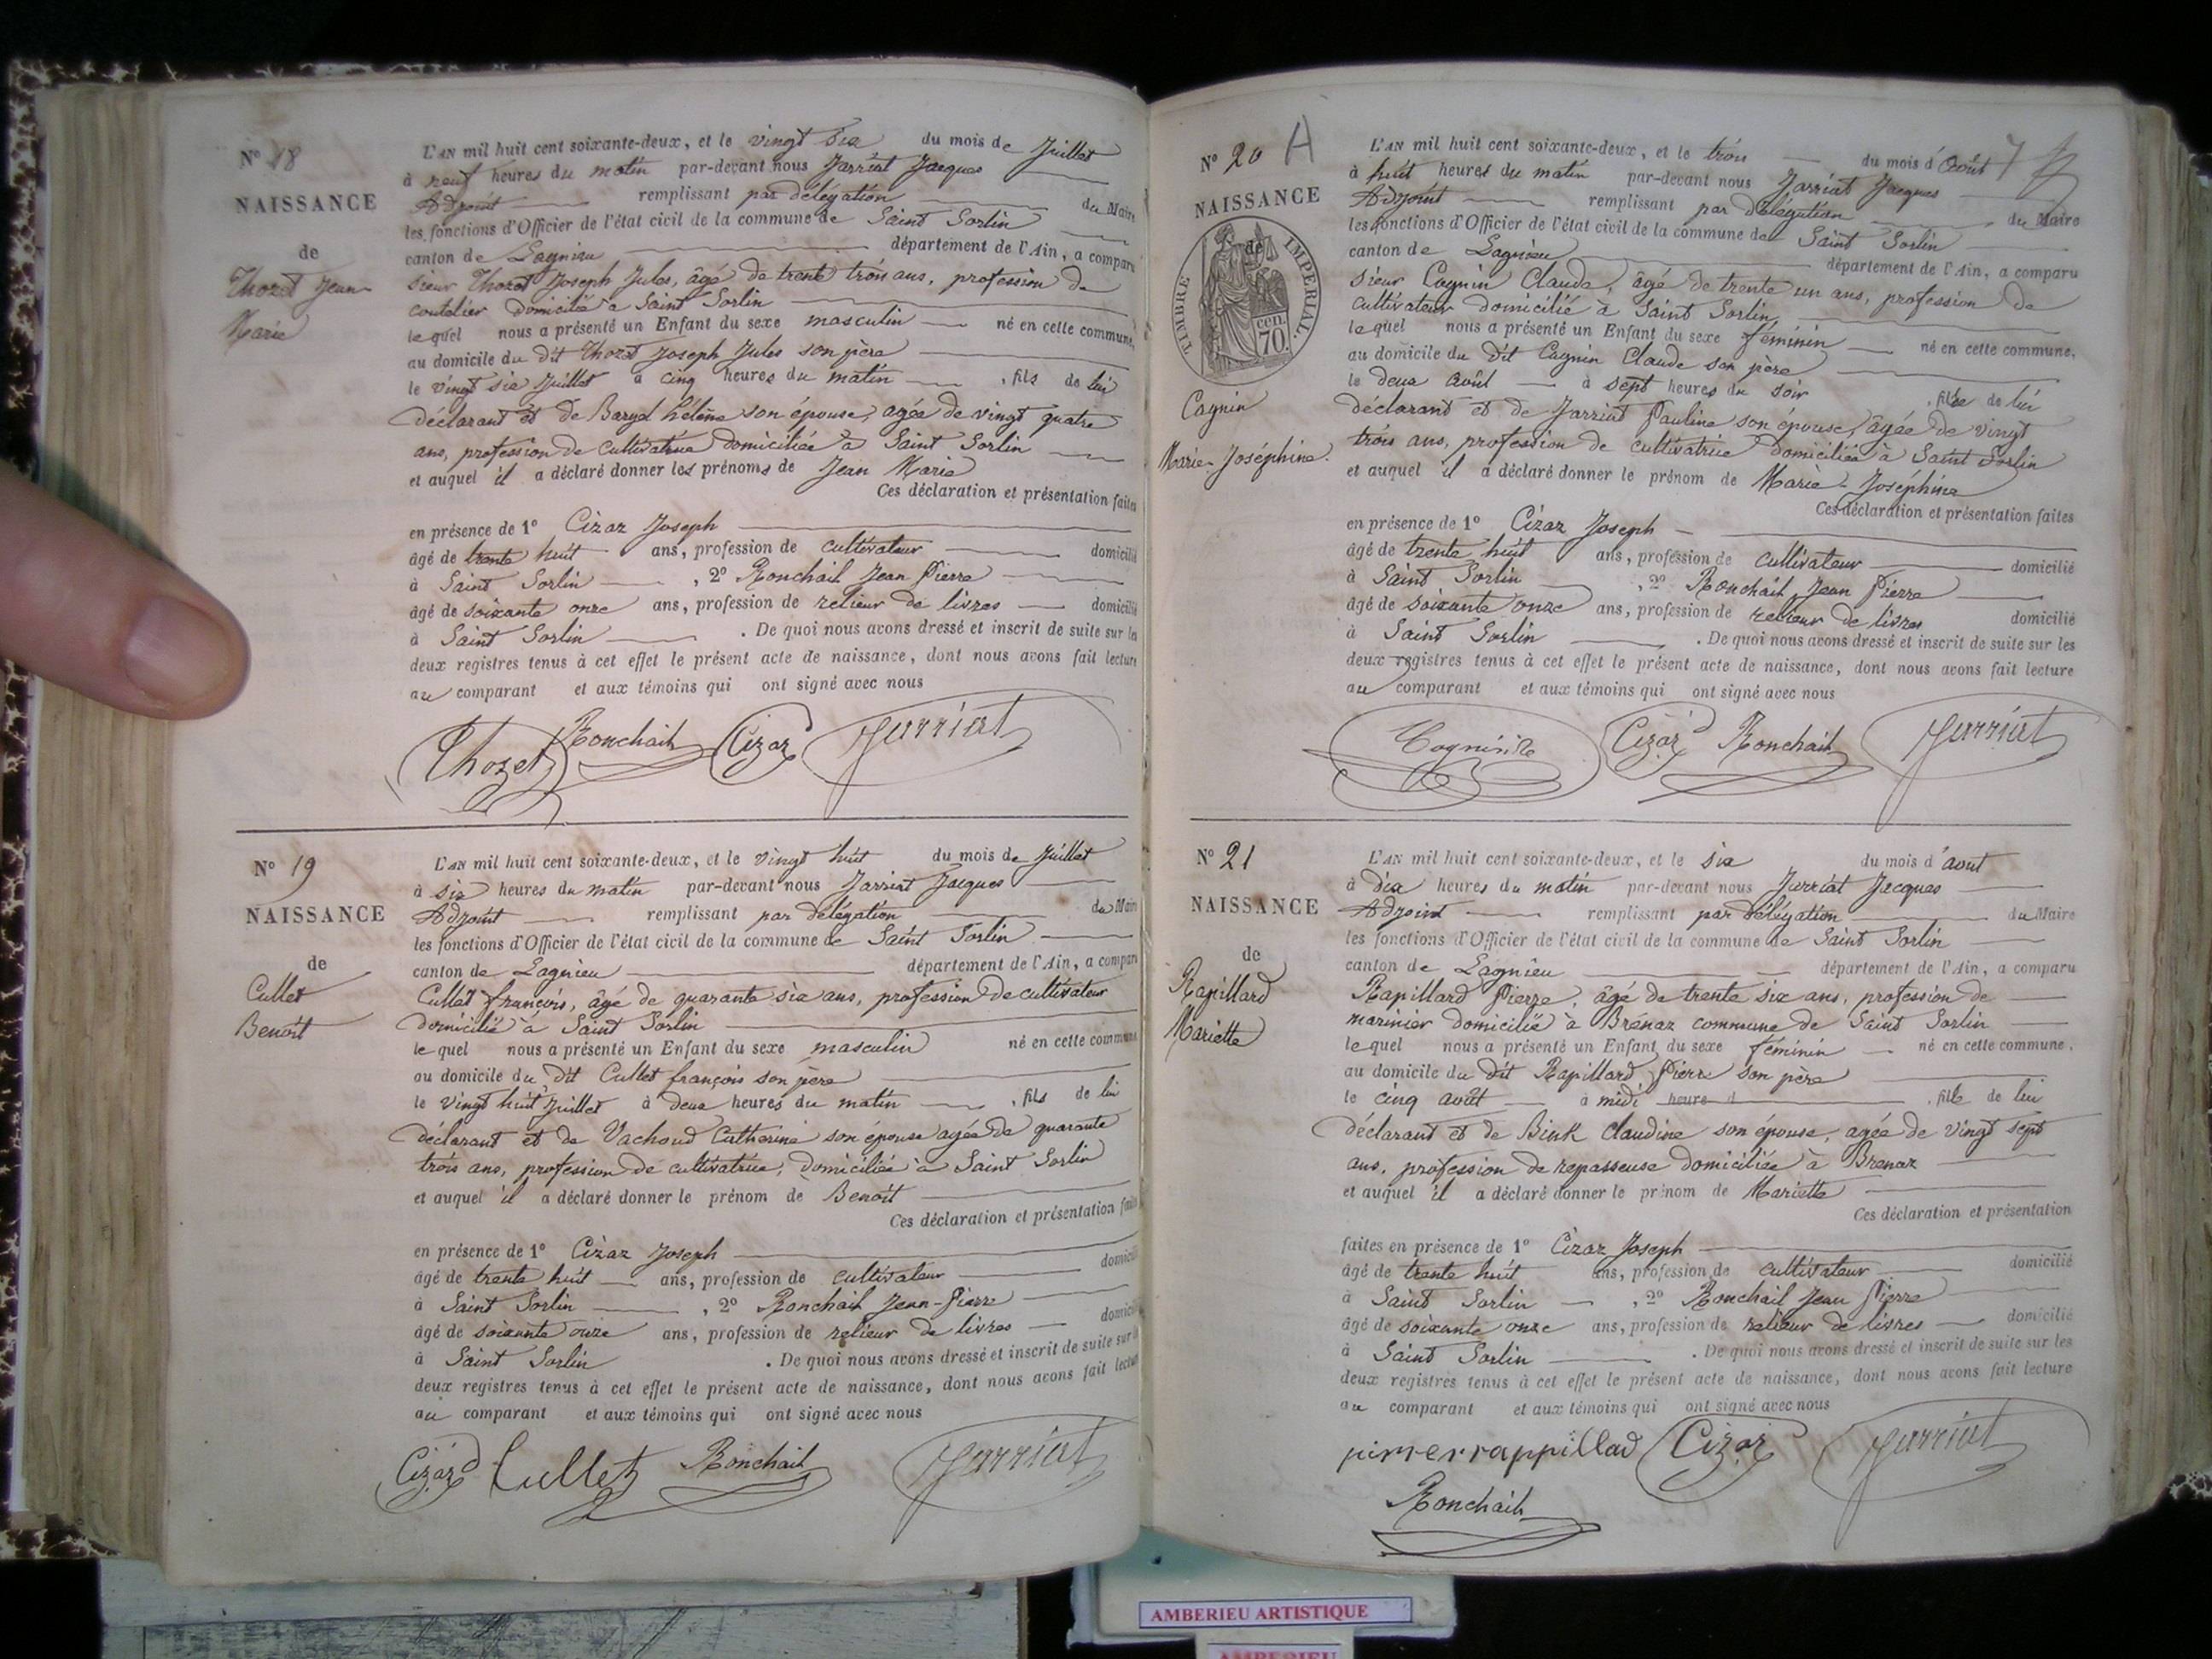 N° 18
NAISSANCE
de
Thozet Jean
Marie
L'AN mil huit cent soixante-deux, et le vingt six du mois de Juillet
à neuf heures du matin par-devant nous Jarriat Jacques
Adjoint remplissant par délégation du Maire
les fonctions d'Officier de l'état civil de la commune de Saint Sorlin
canton de Lagnieu département de l'Ain, a comparu
sieur Thozet Joseph Jules, âgé de trente trois ans, profession de
coutelier domicilié à Saint Sorlin
lequel nous a présenté un Enfant du sexe masculin né en cette commune,
au domicile du dit Thozet Joseph Jules son père
le vingt six Juillet à cinq heures du matin , fils de lui
déclarant et de hélène son épouse, agée de vingt quatre
ans, profession de cultivatrice domiciliée à Saint Sorlin
et auquel il a déclaré donner les prénoms de Jean Marie
Ces déclaration et présentation faites
en présence de 1° Cizaz Joseph
âgé de trente huit ans, profession de cultivateur domicilié
à Saint Sorlin , 2° Ronchail Jean Pierre
âgé de soixante onze ans, profession de relieur de livres domicilié
à Saint Sorlin . De quoi nous avons dressé et inscrit de suite sur les
deux registres tenus à cet effet le présent acte de naissance, dont nous avons fait lecture
au comparant et aux témoins qui ont signé avec nous
Thozet Ronchail Cizaz Jarriat
N° 19
NAISSANCE
de
Cullet
Benoit
L'AN mil huit cent soixante-deux, et le vingt huit du mois de Juillet
à six heures du matin par-devant nous Jarriat Jacques
Adjoint remplissant par délégation du Maire
les fonctions d'Officier de l'état civil de la commune de Saint Sorlin
canton de Lagnieu département de l'Ain, a comparu
Cullet françois, âgé de quarante six ans, profession de cultivateur
domicilié à Saint Sorlin
lequel nous a présenté un Enfant du sexe masculin né en cette commune
au domicile du dit Cullet françois son père
le vingt huit Juillet à deux heures du matin , fils de lui
déclarant et de Vachoud Catherine son épouse agée de quarante
trois ans, profession de cultivatrice, domiciliée à Saint Sorlin
et auquel il a déclaré donner le prénom de Benoit
Ces déclaration et présentation faites
en présence de 1° Cizaz Joseph
âgé de trente huit ans, profession de cultivateur domicilié
à Saint Sorlin , 2° Ronchail Jean-Pierre
âgé de soixante onze ans, profession de relieur de livres domicilié
à Saint Sorlin . De quoi nous avons dressé et inscrit de suite sur les
deux registres tenus à cet effet le présent acte de naissance, dont nous avons fait lecture
au comparant et aux témoins qui ont signé avec nous
Cizaz Cullet Ronchail Jarriat
N° 20 A
NAISSANCE
de
TIMBRE IMPERIAL.
70 cen.
Cagnin
Marie-Joséphine
L'AN mil huit cent soixante-deux, et le trois du mois d'Août 7
à huit heures du matin par-devant nous Jarriat Jacques
Adjoint remplissant par délégation du Maire
les fonctions d'Officier de l'état civil de la commune de Saint Sorlin
canton de Lagnieu département de l'Ain, a comparu
sieur Cagnin Claude, âgé de trente un ans, profession de
cultivateur domicilié à Saint Sorlin
lequel nous a présenté un Enfant du sexe féminin né en cette commune,
au domicile du dit Cagnin Claude son père
le deux Août à sept heures du soir , fille de lui
déclarant et de Jarriat Pauline son épouse, âgée de vingt
trois ans, profession de cultivatrice domiciliée à Saint Sorlin
et auquel il a déclaré donner le prénom de Marie-Joséphine
Ces déclaration et présentation faites
en présence de 1° Cizaz Joseph
âgé de trente huit ans, profession de cultivateur domicilié
à Saint Sorlin , 2° Ronchail Jean Pierre
âgé de soixante onze ans, profession de relieur de livres domicilié
à Saint Sorlin . De quoi nous avons dressé et inscrit de suite sur les
deux registres tenus à cet effet le présent acte de naissance, dont nous avons fait lecture
au comparant et aux témoins qui ont signé avec nous
Cizaz Ronchail Jarriat
N° 21
NAISSANCE
de
Rapillard
Mariette
L'AN mil huit cent soixante-deux, et le six du mois d'août
à dix heures du matin par-devant nous Jarriat Jacques
Adjoint remplissant par délégation du Maire
les fonctions d'Officier de l'état civil de la commune de Saint Sorlin
canton de Lagnieu département de l'Ain, a comparu
Rapillard Pierre, âgé de trente six ans, profession de
marinier domicilié à Brénaz commune de Saint Sorlin
lequel nous a présenté un Enfant du sexe féminin né en cette commune,
au domicile du dit Rapillard Pierre son père
le cinq août à midi heure d , fille de lui
déclarant et de Bink Claudine son épouse, agée de vingt sept
ans, profession de repasseuse domiciliée à Brenaz
et auquel il a déclaré donner le prénom de Mariette
Ces déclaration et présentation
faites en présence de 1° Cizaz Joseph
âgé de trente huit ans, profession de cultivateur domicilié
à Saint Sorlin , 2° Ronchail Jean Pierre
âgé de soixante onze ans, profession de relieur de livres domicilié
à Saint Sorlin . De quoi nous avons dressé et inscrit de suite sur les
deux registres tenus à cet effet le présent acte de naissance, dont nous avons fait lecture
au comparant et aux témoins qui ont signé avec nous
pierre rappillad Cizaz Jarriat
Ronchail
AMBERIEU ARTISTIQUE
AMBERIEU